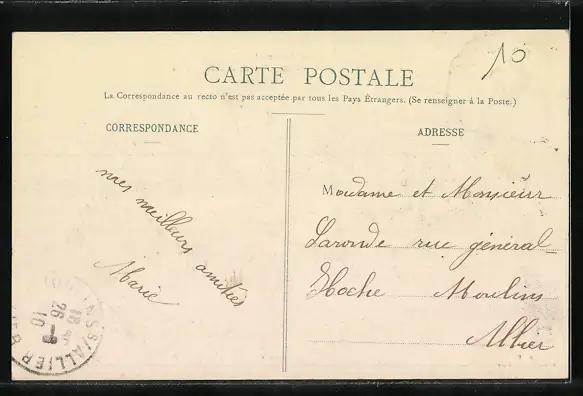 10
CARTE POSTALE
La Correspondance au recto n'est pas acceptée par tous les Pays Étrangers. (Se renseigner à la Poste.)
CORRESPONDANCE
mes meilleurs amitiés
Marie
ADRESSE
Madame et Monsieur
Laronde rue général
Hoche Moulins
Allier
S/ALLIER
18
26-8
10